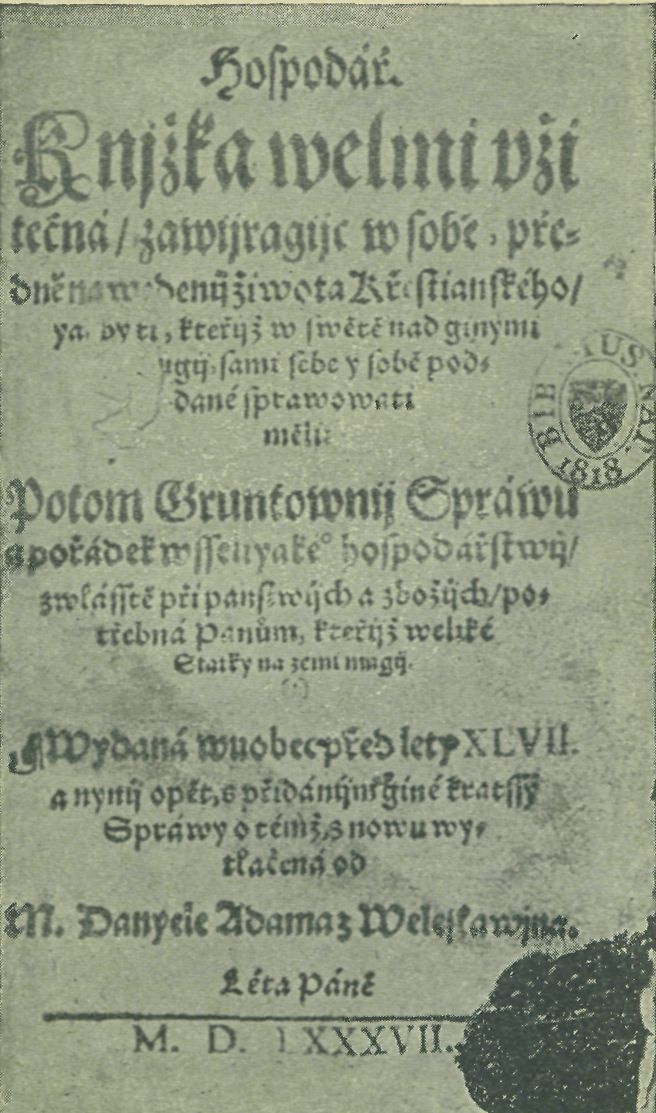 Hospodář.
Knjžka welmi vži
tečná / zawijragijc w sobě, pře-
dně nawedenij žiwota Křestianského /
ti, kteřijž w swětě nad ginymi
sami sebe y sobě pod-
dané sprawowati
měli:
Potom Gruntownij Spráwu
a pořádek wsselyake° hospodářstwij /
zwlásstě při panstwijch a zbožijch / po-
třebná Panům, kteřijž weliké
Statky na zemi magij.
(:)
Wydaná wuobec před lety XLVII.
a nynij opět, s přidánijm giné kratssý
Spráwy o témž, s nowu wy-
tlačená od
M. Danyele Adama z Weleslawjna.
Léta Páně
M. D. LXXXVII.
BIB MUS NAT 1818